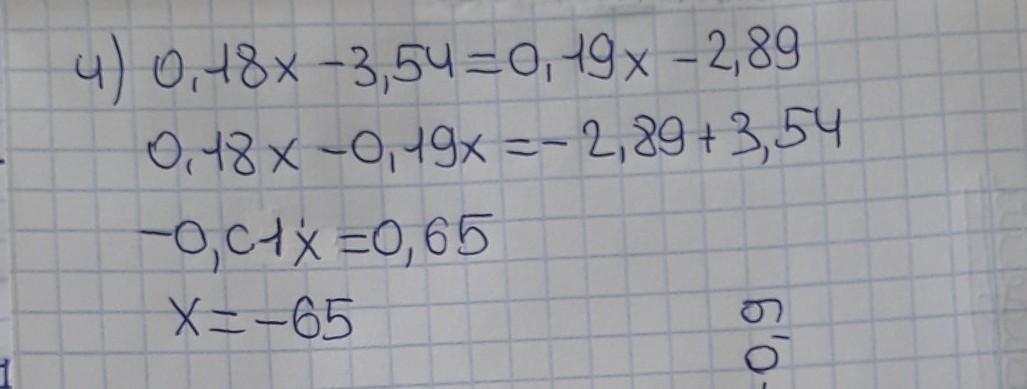 4) 0,18x-3,54=0,19x-2,89
0,18x-0,19x=-2,89+3,54
-0,01x=0,65
x=-65